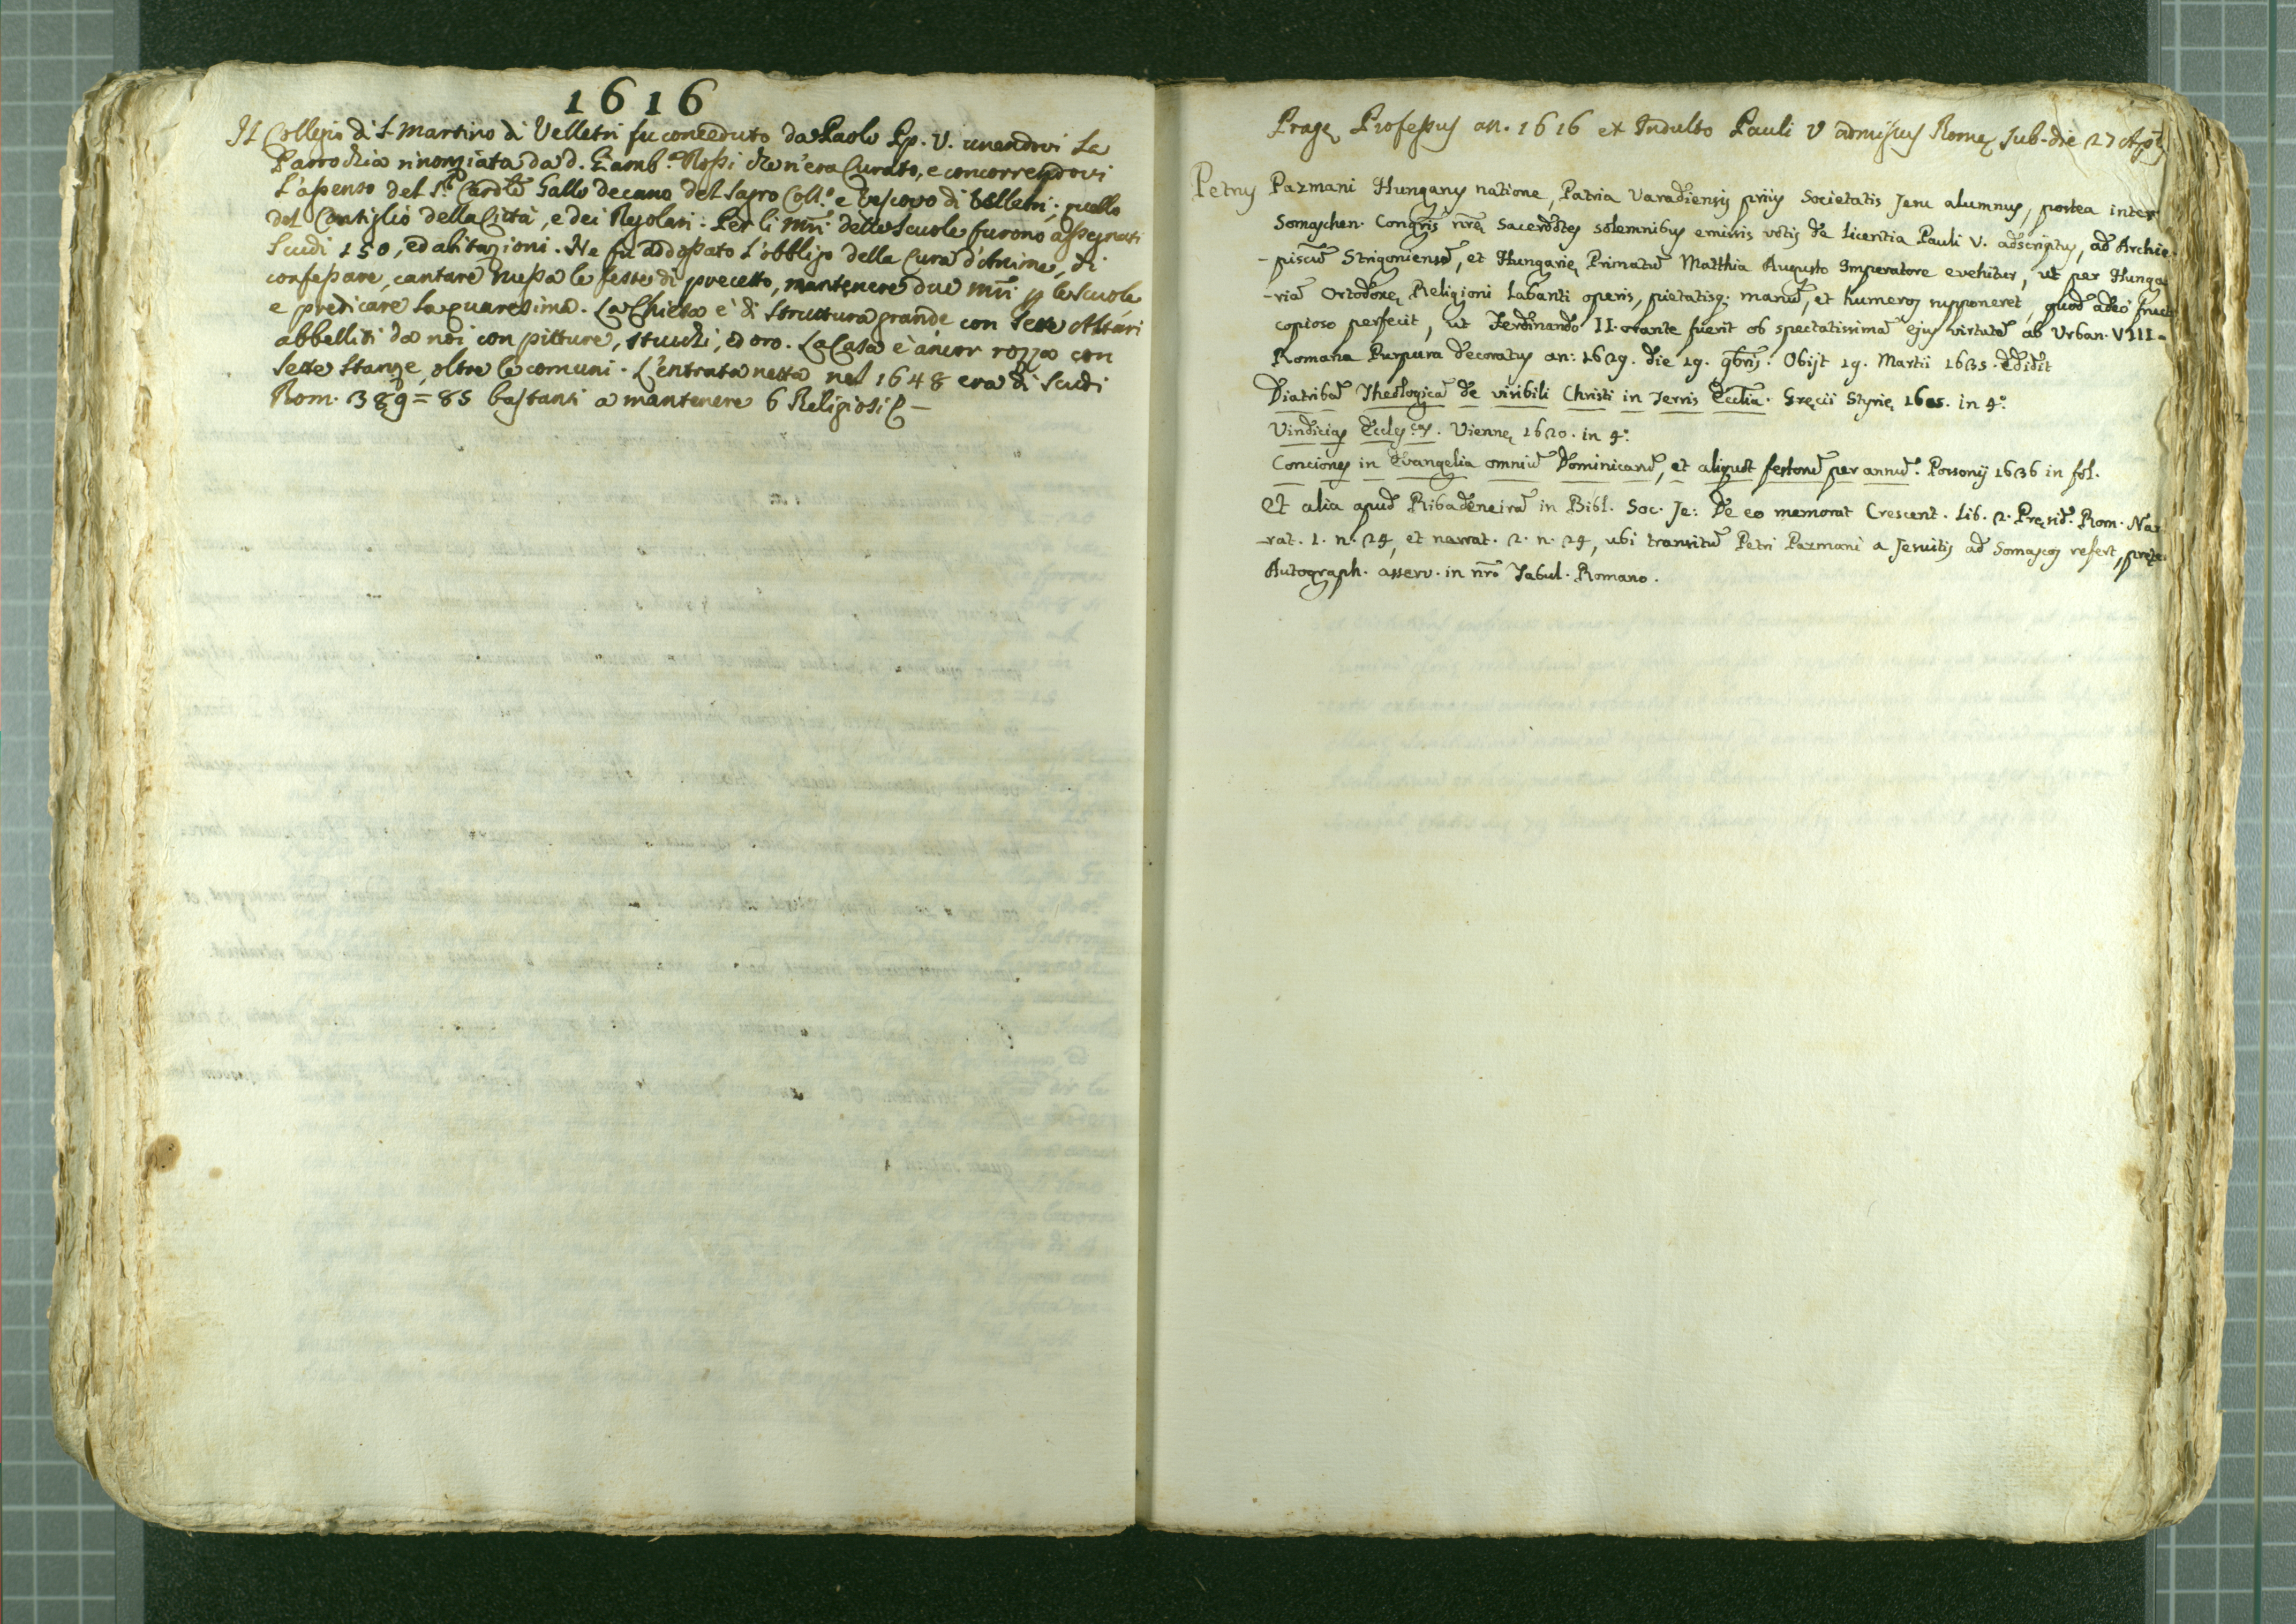 1616
Il Collegio di S. Martino di Velletri fu conceduto da Paolo Pp. V. unendovi la
Parrochia rinonziata da d. Giamb.a Rossi che n'era Curato, e concorrendovi
l'assenso del S.r Cardle Gallo decano del Sagro Coll.o e Vescovo di Velletri, quello
del Consiglio della Città, e dei Regolari. Per li mri delle Scuole furono assegnati
Scudi 150, ed abitazioni. Ne fu addossato l'obbligo della Cura d'Anime, di
confessare, cantare messa le feste di precetto, mantenere due mri p le Scuole
e predicare la quaresima. La Chiesa è di Struttura grande con Sette Altari
abbelliti da noi con pitture, stucchi, ed oro. La Casa è ancor rozza con
Sette Stanze, oltre le comuni. L'entrata netta nel 1648 era di Scudi
Rom. 389=85 bastanti a mantenere 6 Religiosi
Pragę Professus an. 1616 ex Indulto Pauli V admissus Romę sub die 27
Petrus Pazmani Hungarus natione, Patria Varadiensis prius Societatis Jesu alumnus, postea inter
Somaschen. Congrīs nrę Sacerdotes solemnibus emissis votis de licentia Pauli V. adscriptus, ad Archie-
-piscūm Strigoniensē, et Hungarię Primatū Matthia Augusto Imperatore evehitur, ut per Hunga
-riā Ortodoxę Religioni labanti operis, pietatisq; manū, et humeros supponeret, quod adeò
copioso perfecit, ut Ferdinando II. orante fuerit ob spectatissimā ejus virtutē ab Urban. VIII.
Romana Purpura decoratus an: 1629. die 19. 9bris. Obijt 19. Martii 1635. Edidit
Diatribā Theologicā de visibili Christi in Terris Ecclia. Gręcii Styrię 1605. in 4.o
Vindicias Eccles.cas. Viennę 1620. in 4.o
Conciones in Evangelia omniū Dominicarū, et aliquot festorū per annū. Posonij 1636 in fol.
Et alia apud Ribadeneirā in Bibl. Soc. Je: De eo memorat Crescent. Lib. 2. Pręsid. Rom. Nar-
-rat. 1. n. 24, et narrat. 2. n. 24, ubi transitū Petri Pazmani a Jesuitis ad Somascos refert,
Autograph. asserv. in nro Tabul. Romano.